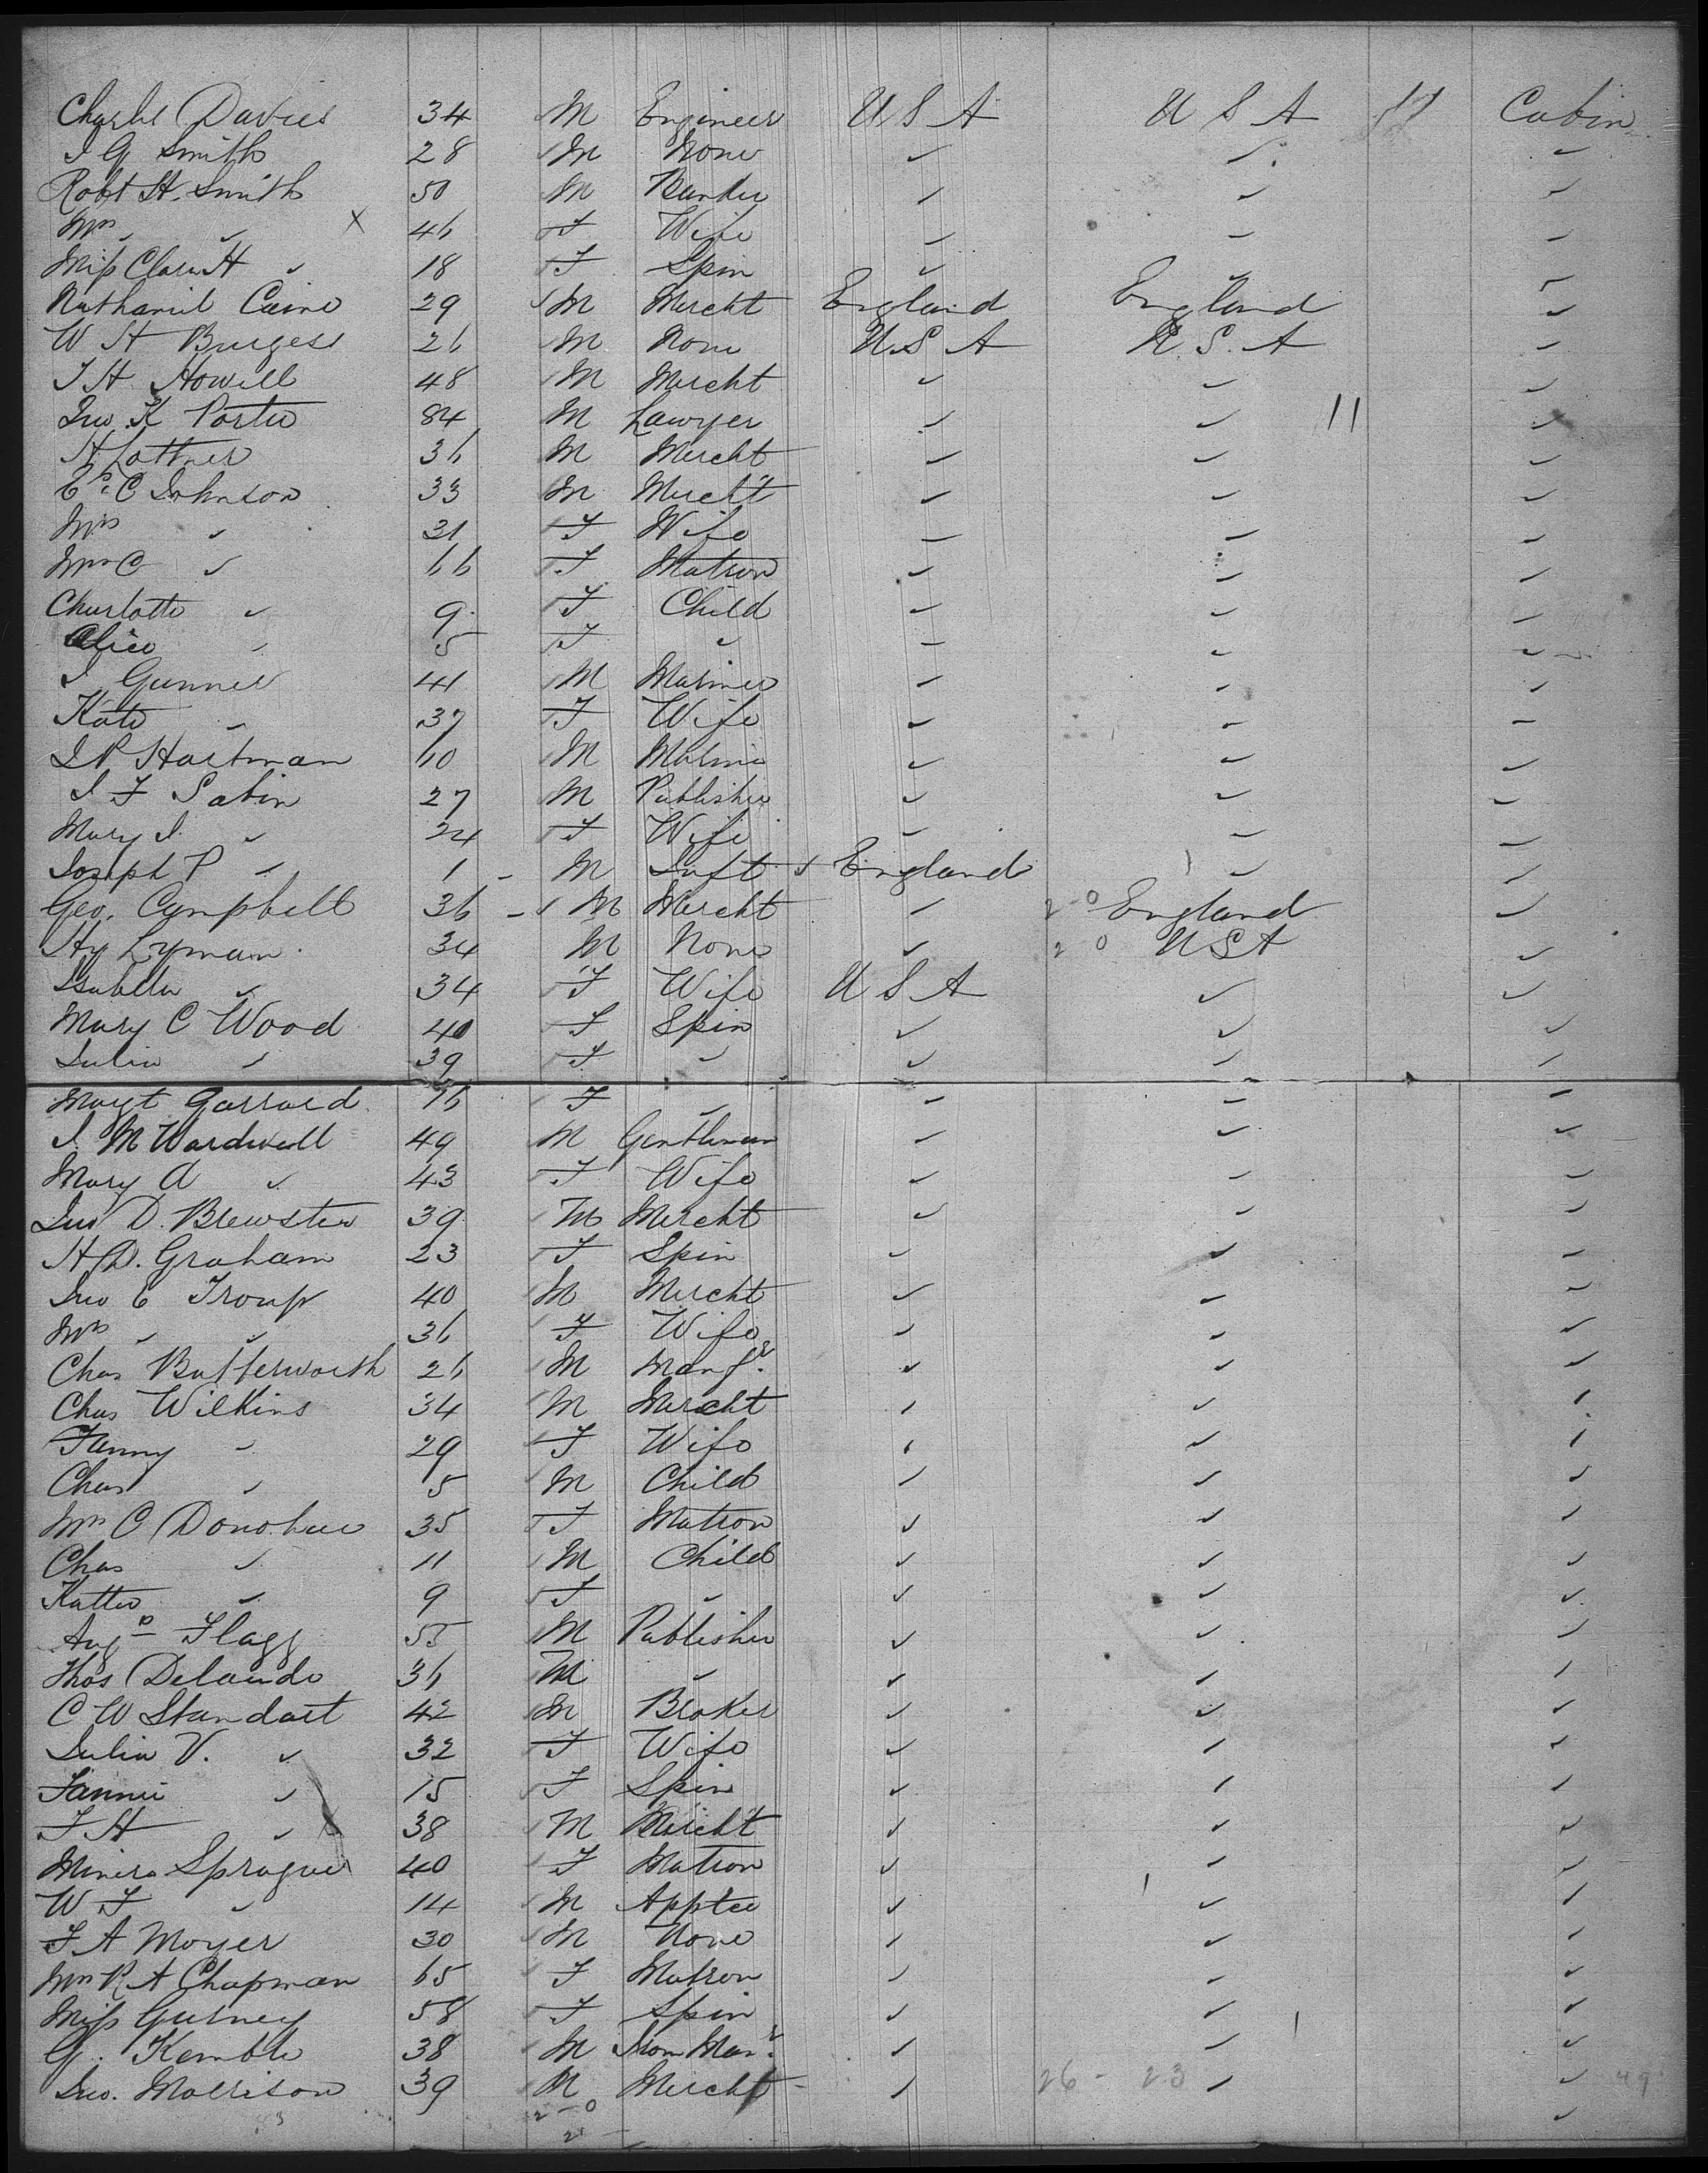 Charles Davies 34 M Engineer U S A U S A Cabin
I G Smith 28 M None ✓ ✓ ✓
Robt H. Smith 50 M Banker ✓ ✓ ✓
Mrs ✓ ✓ X 46 F Wife ✓ ✓ ✓
Miss Clara H ✓ 18 F Spin ✓ ✓ ✓
Nathaniel Caine 29 M Mercht England England ✓
W H Burgess 26 M None U.S A U.S.A ✓
T H Howell 48 M Mercht ✓ ✓ ✓
Jno. K Porter 84 M Lawyer ✓ ✓ 11 ✓
H Lottner 36 M Mercht ✓ ✓ ✓
C Johnson 33 M Mercht ✓ ✓ ✓
Mrs ✓ 31 F Wife ✓ ✓ ✓
Mrs C ✓ 66 F Matron ✓ ✓ ✓
Charlotte ✓ 9 F Child ✓ ✓ ✓
Alice ✓ 5 F ✓ ✓ ✓ ✓
I Gunner 41 M Mariner ✓ ✓ ✓
Kate ✓ 37 F Wife ✓ ✓ ✓
Hartman 60 M ✓ ✓ ✓
I F Sabin 27 M Publisher ✓ ✓ ✓
Mary I. ✓ 24 F Wife ✓ ✓ ✓
Joseph P ✓ 1 M Inft England ✓ ✓
Geo. Campbell 36 M Mercht ✓ 2-0 England ✓
Hy Lyman 34 M None ✓ 2 0 U S A ✓
Isabella ✓ 34 F Wife U S A ✓ ✓
Mary C Wood 40 F Spin ✓ ✓ ✓
Julia ✓ 39 F ✓ ✓ ✓ ✓
Margt Garrard F ✓ ✓ ✓ ✓
I. M Wardwell 49 M Gentleman ✓ ✓ ✓
Mary A ✓ 43 F Wife ✓ ✓ ✓
Jno D. Brewster 39 M Mercht ✓ ✓ ✓
H D. Graham 23 F Spin ✓ ✓ ✓
Jno C Troup 40 M Mercht ✓ ✓ ✓
Mrs ✓ ✓ 36 F Wife ✓ ✓ ✓
Chas Butterworth 26 M Manfr ✓ ✓ ✓
Chas Wilkins 34 M Mercht ✓ ✓ ✓
Fanny ✓ 29 F Wife ✓ ✓ ✓
Chas ✓ 5 M Child ✓ ✓ ✓
Mrs C Donohue 35 F Matron ✓ ✓ ✓
Chas ✓ 11 M Child ✓ ✓ ✓
Katie ✓ 9 F ✓ ✓ ✓ ✓
Augs Flagg 55 M Publisher ✓ ✓ ✓
Thos Delando 36 M ✓ ✓ ✓ ✓
C W Standart 42 M Broker ✓ ✓ ✓
Julia V. ✓ 32 F Wife ✓ ✓ ✓
Fannie ✓ 15 F Spin ✓ ✓ ✓
F H ✓ X 38 M Mercht ✓ ✓ ✓
Sprague 40 F Matron ✓ ✓ ✓
W F ✓ 14 M Apptce ✓ ✓ ✓
F A Moyer 30 M None ✓ ✓ ✓
Mrs R A Chapman 65 F Matron ✓ ✓ ✓
Miss Gurney 58 F Spin ✓ ✓ ✓
G. Kemble 38 M Iron Manr ✓ ✓ ✓
Jno. Morrison 39 M Mercht ✓ 26 - 23 ✓ ✓ 49
2-0